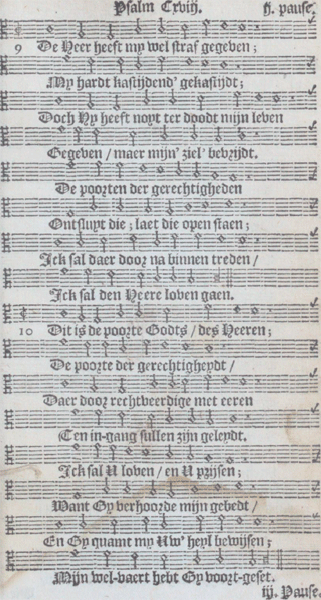 Psalm Cxviij. ij. pause.
9 De Heer heeft my wel straf gegeven;
My hardt kastijdend' gekastijdt;
Doch Hy heeft noyt ter doodt mijn leven
Gegeven / maer mijn' ziel' bevrijdt.
De poorten der gerechtigheden
Ontsluyt die; laet die open staen;
Ick sal daer door na binnen treden /
Ick sal den Heere loven gaen.
10 Dit is de poorte Godts / des Heeren;
De poorte der gerechtigheydt /
Daer door rechtveerdige met eeren
Ten in-gang sullen zijn geleydt.
Ick sal U loven / en U prijsen;
Want Gy verhoorde mijn gebedt /
En Gy quamt my Uw' heyl bewijsen;
Mijn wel-vaert hebt Gy voort-geset.
iij. Pause.